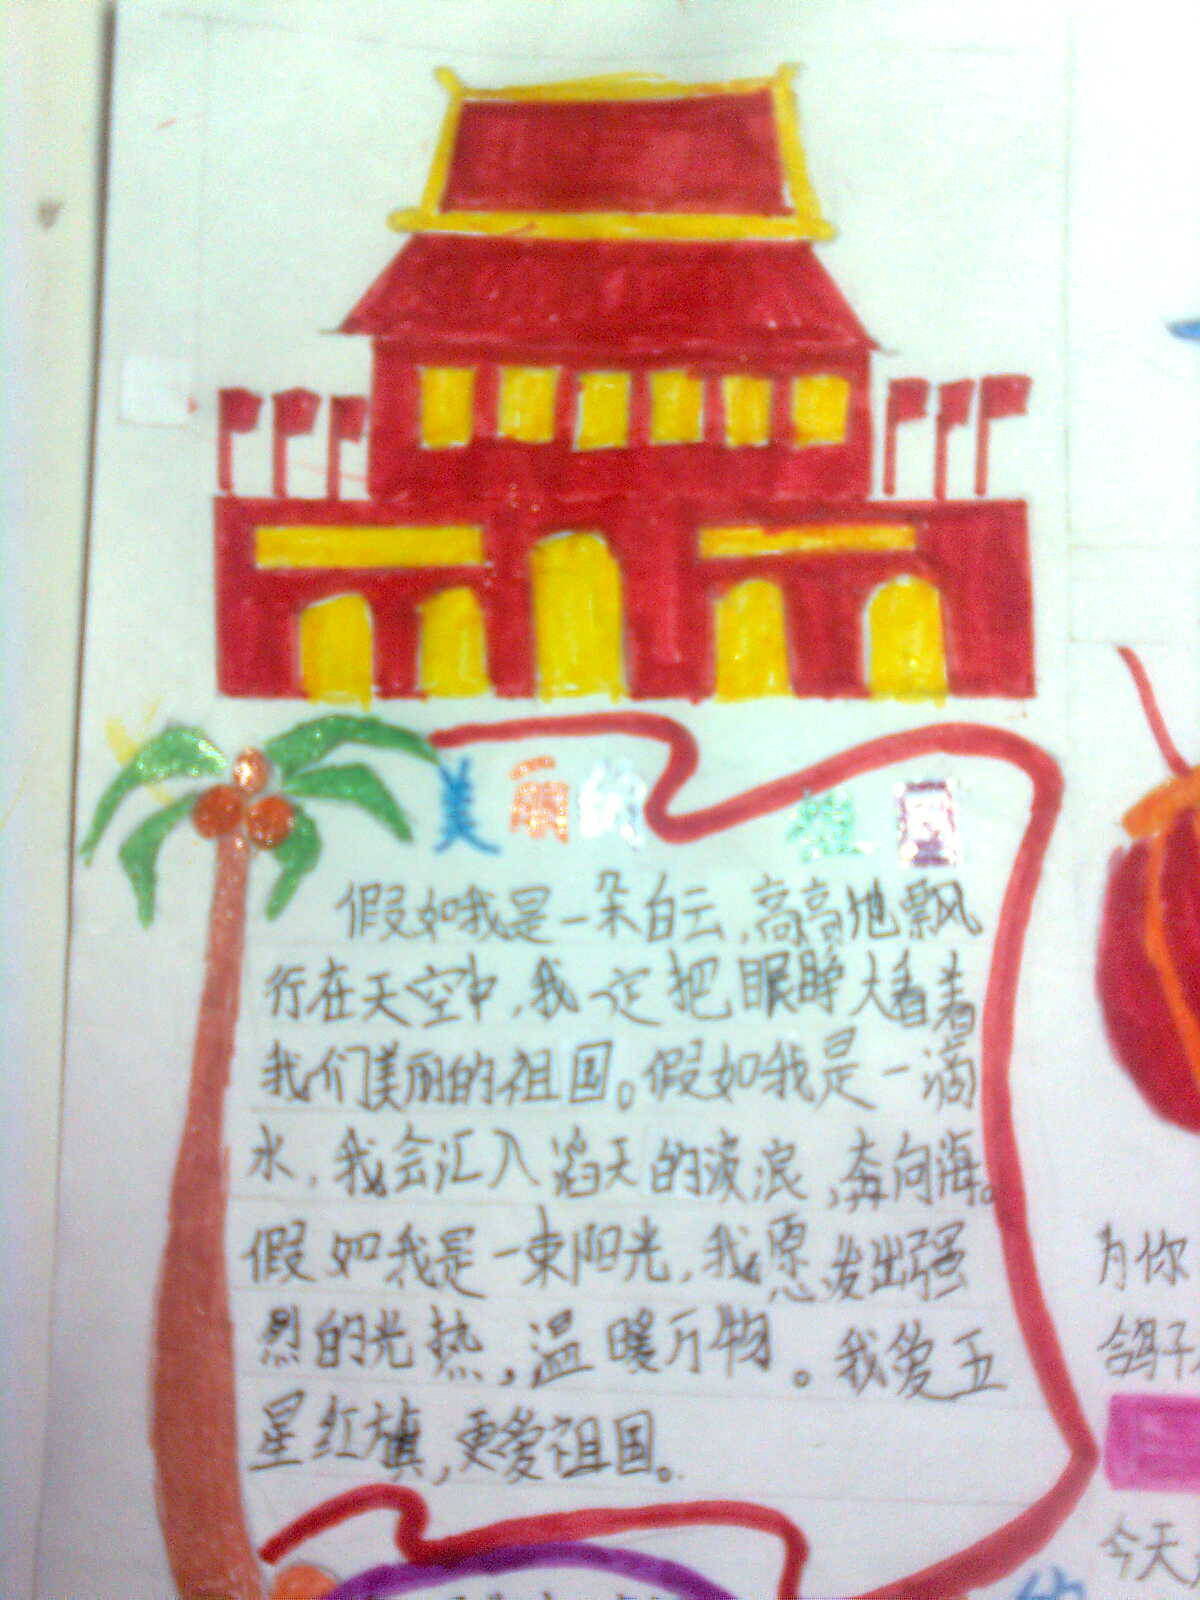 美丽的祖国
假如我是一朵白云,高高地飘
行在天空中,我一定把眼睁大看着
我们美丽的祖国。假如我是一滴
水,我会汇入滔天的波浪,奔向海。
假如我是一束阳光,我愿发出强
烈的光热,温暖万物。我爱五
星红旗,更爱祖国。
你
鸽子
今天